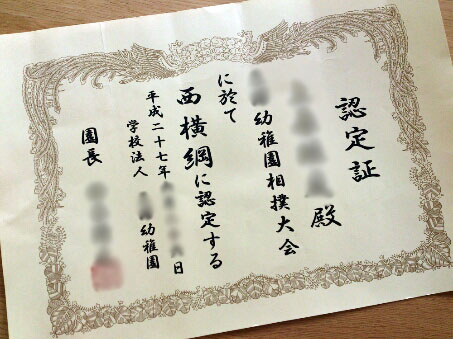 認定証
殿
幼稚園相撲大会
に於て
西横綱に認定する
平成二十七年 日
学校法人 幼稚園
園長